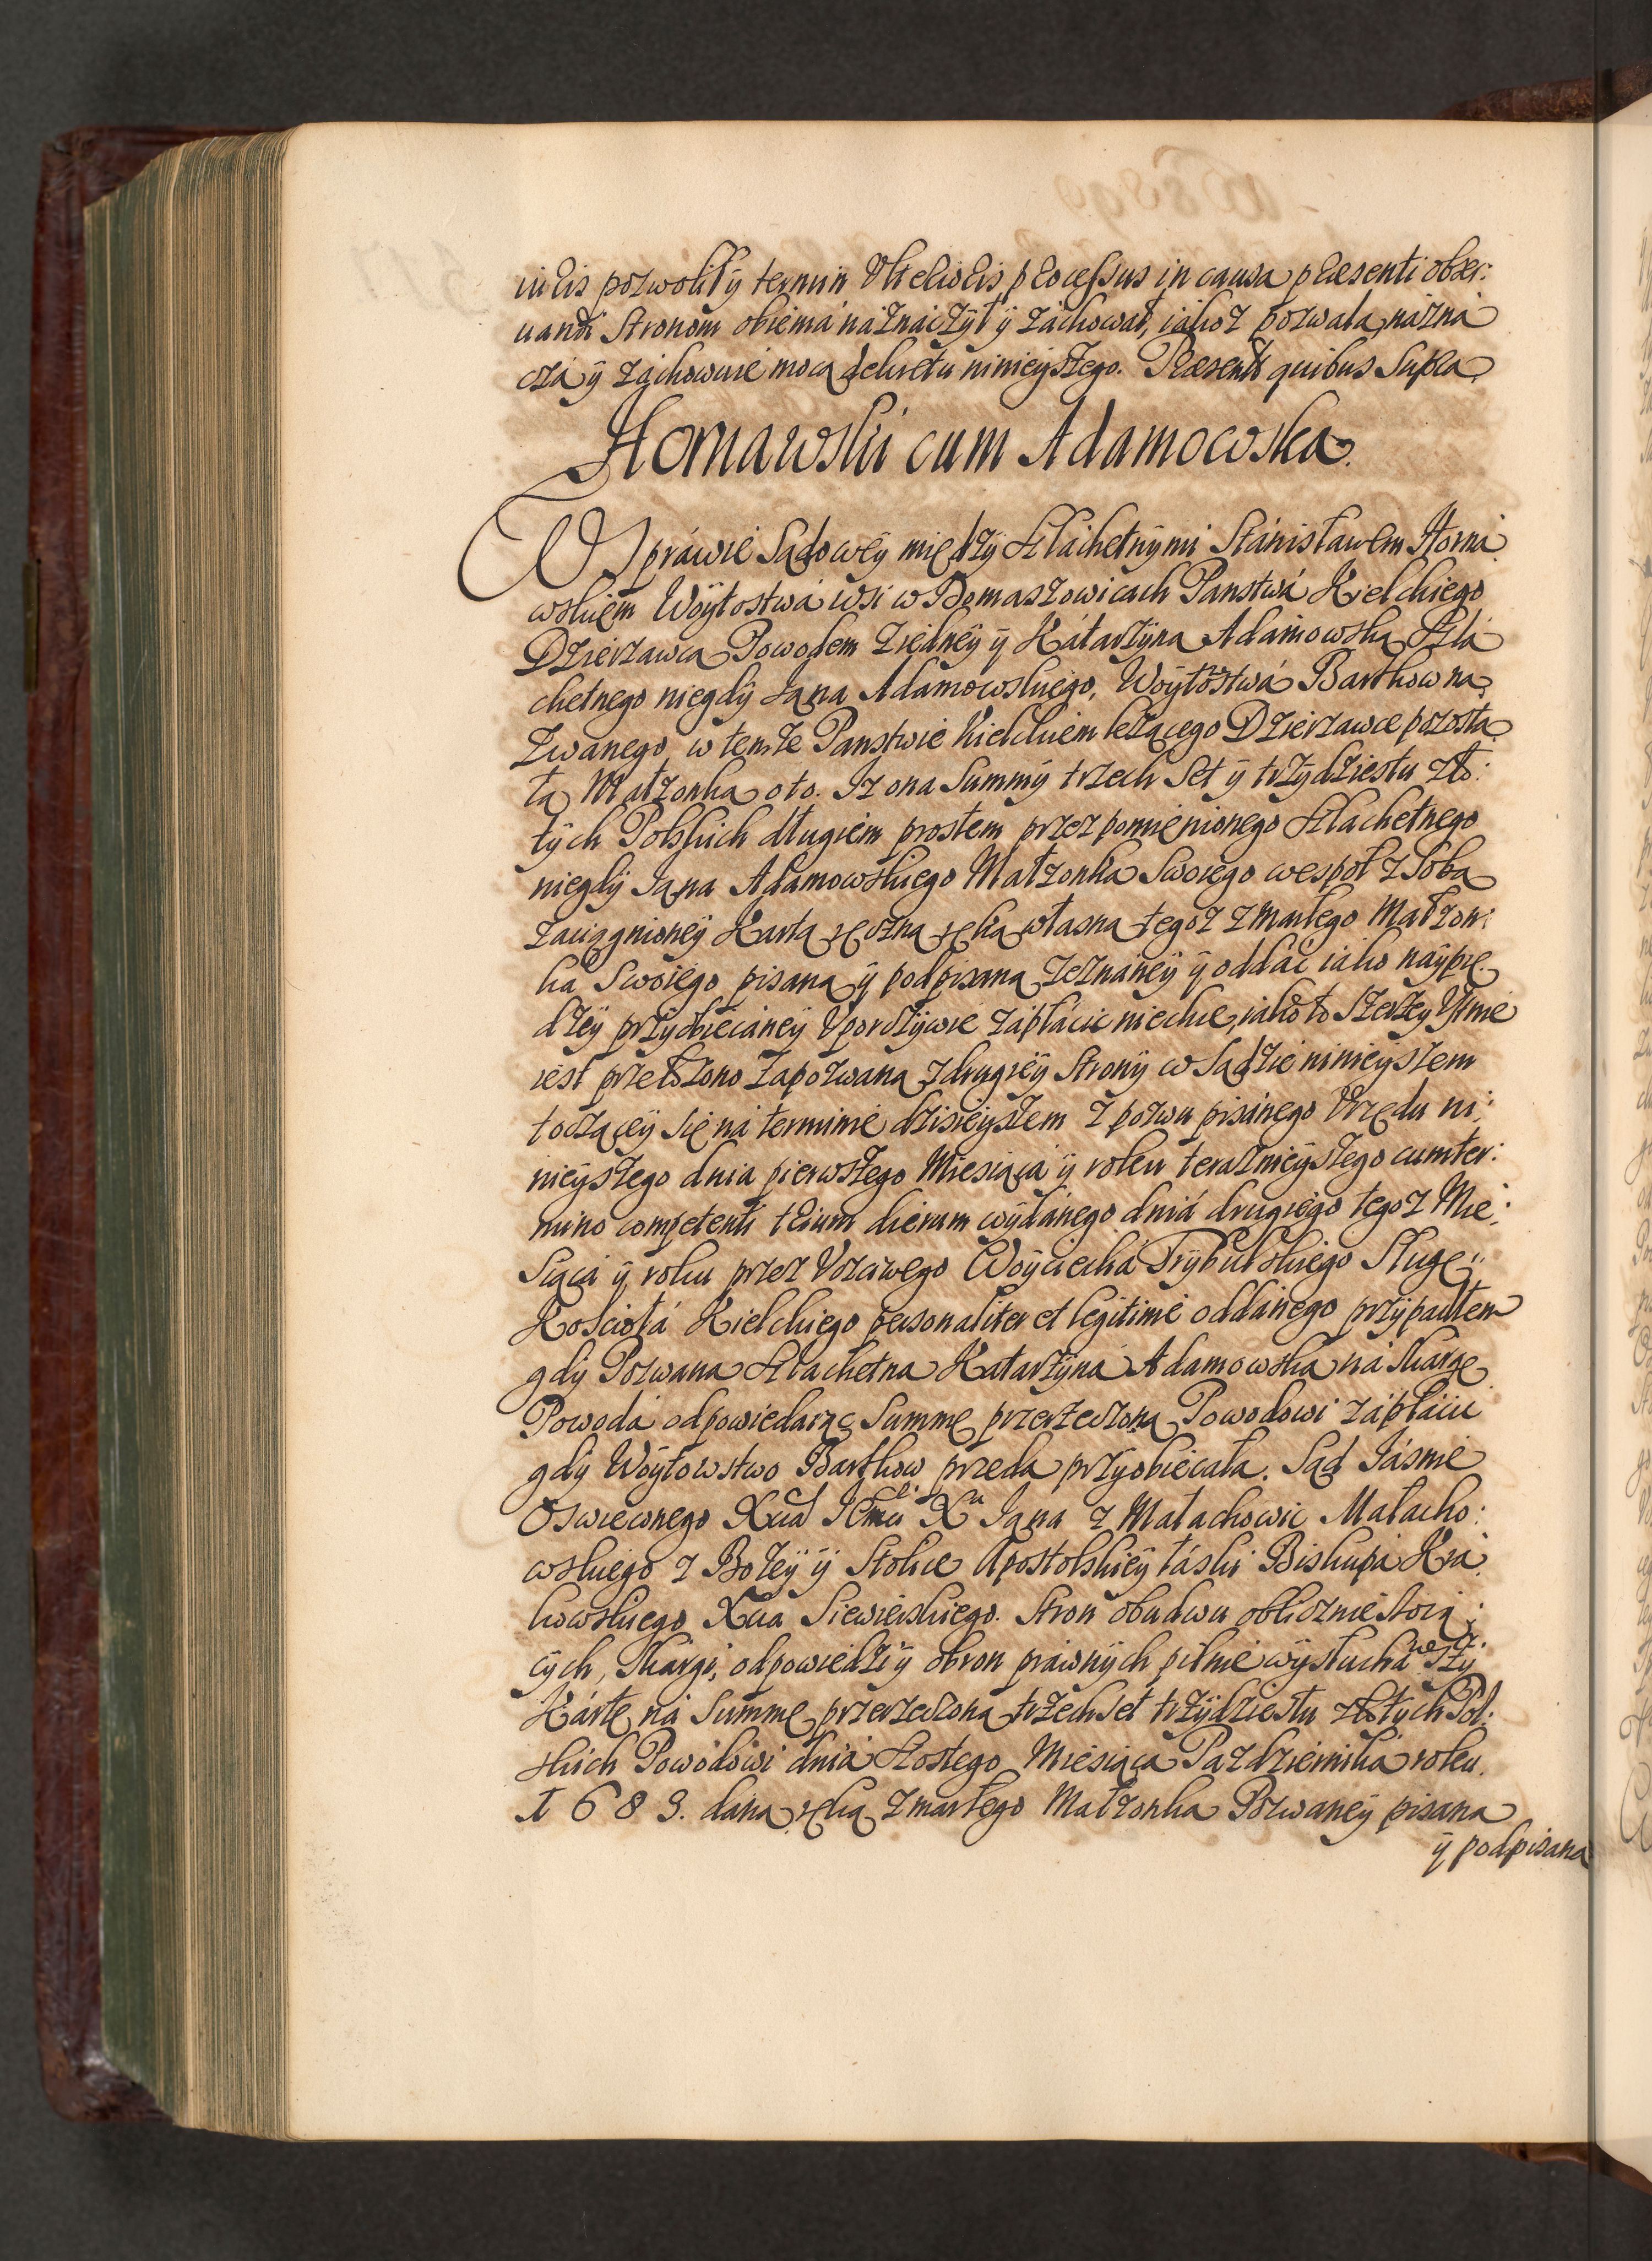 iuris pozwolił ÿ termin Vlterioris processus in causa præsenti obser:
uandi Stronom obiema naznaczÿł ÿ záchował, iákoz pozwala, názná
cza ÿ záchowuie mocą dekretu ninieÿszego. Præsentib quibus Supra
Hornawski cum Adamowska.
W Spráwie Sądowéÿ międzÿ Szláchetnÿmi Stánisławem Horná
wskiem Wóÿtostwá wsi w Domaszowicach Panstwá Kielckiego
Dzierzawcą Powodem z iednéÿ ÿ Kátarzÿną Adamowską Szlá
chetnego niegdÿ Jana Adamowskiego, Woÿtostwá Barthow na
zwanego w temze Panstwie Kielckiem lezącego Dzierzawce pozosta
łą Małzonką o to. Iz ona Summÿ trzech Set ÿ trzÿdziestu zło:
tÿch Polskich długiem prostem przez pomienionego Szlachetnego
niegdÿ Jana Adamowskiego Małzonka Swoiego wespoł z Sobą
zaciągnioneÿ Kartą ręczną ręką własną tegoz zmarłego Małzon:
ka Swoiego pisaną ÿ podpisaną zeznánéÿ ÿ oddać iáko náÿprę
dzéÿ przÿobiecánéÿ Vporczÿwie zápłácic niechce, iáko to Szerzeÿ Vstnie
iest przełozono zapozwaną z drugieÿ Stronÿ w Sądzie ninieÿszem
toczącéÿ się ná terminie dzisieÿszem z pozwu pisánego Vrzędu ni:
nieÿszego dnia pierwszego Miesiąca ÿ roku terazniéÿszego cum ter:
mino competenti trium dierum wÿdánego dniá drugiego tegoz Mie:
Siąca ÿ roku przez Vczciwego Woÿciecha Trÿbulskiego Sługę
Kosciołá Kielckiego personaliter et legitime oddánego przÿpadłem
gdÿ Pozwana Szlachetna Katarzÿna Adamowska ná Skargę
Powoda odpowiedaiąc Summę przerzeczoną Powodowi zápłácic
gdÿ Woÿtowstwo Barthow przeda przÿobiecała. Sąd Jásnie
Oswieconego Xcia Jmci Xa Jana z Małachowic Małacho:
wskiego z Bożéÿ ÿ Stolice Apostolskiéÿ łáski Biskupa Kra
kowskiego Xcia Siewierskiego. Stron obudwu oblicznie stoią
cÿch, Skargi, odpowiedzi ÿ obron práwnÿch pilnie wÿsłuchawszÿ
Kártę ná Summę przerzeczoną trzech set trzÿdziestu złotÿch Pol:
skich Powodowi dniá Szostego Miesiąca Pazdziernika roku
1689. daną, ręką zmarłego Małzonka Pozwanéÿ pisaną
ÿ podpisaną